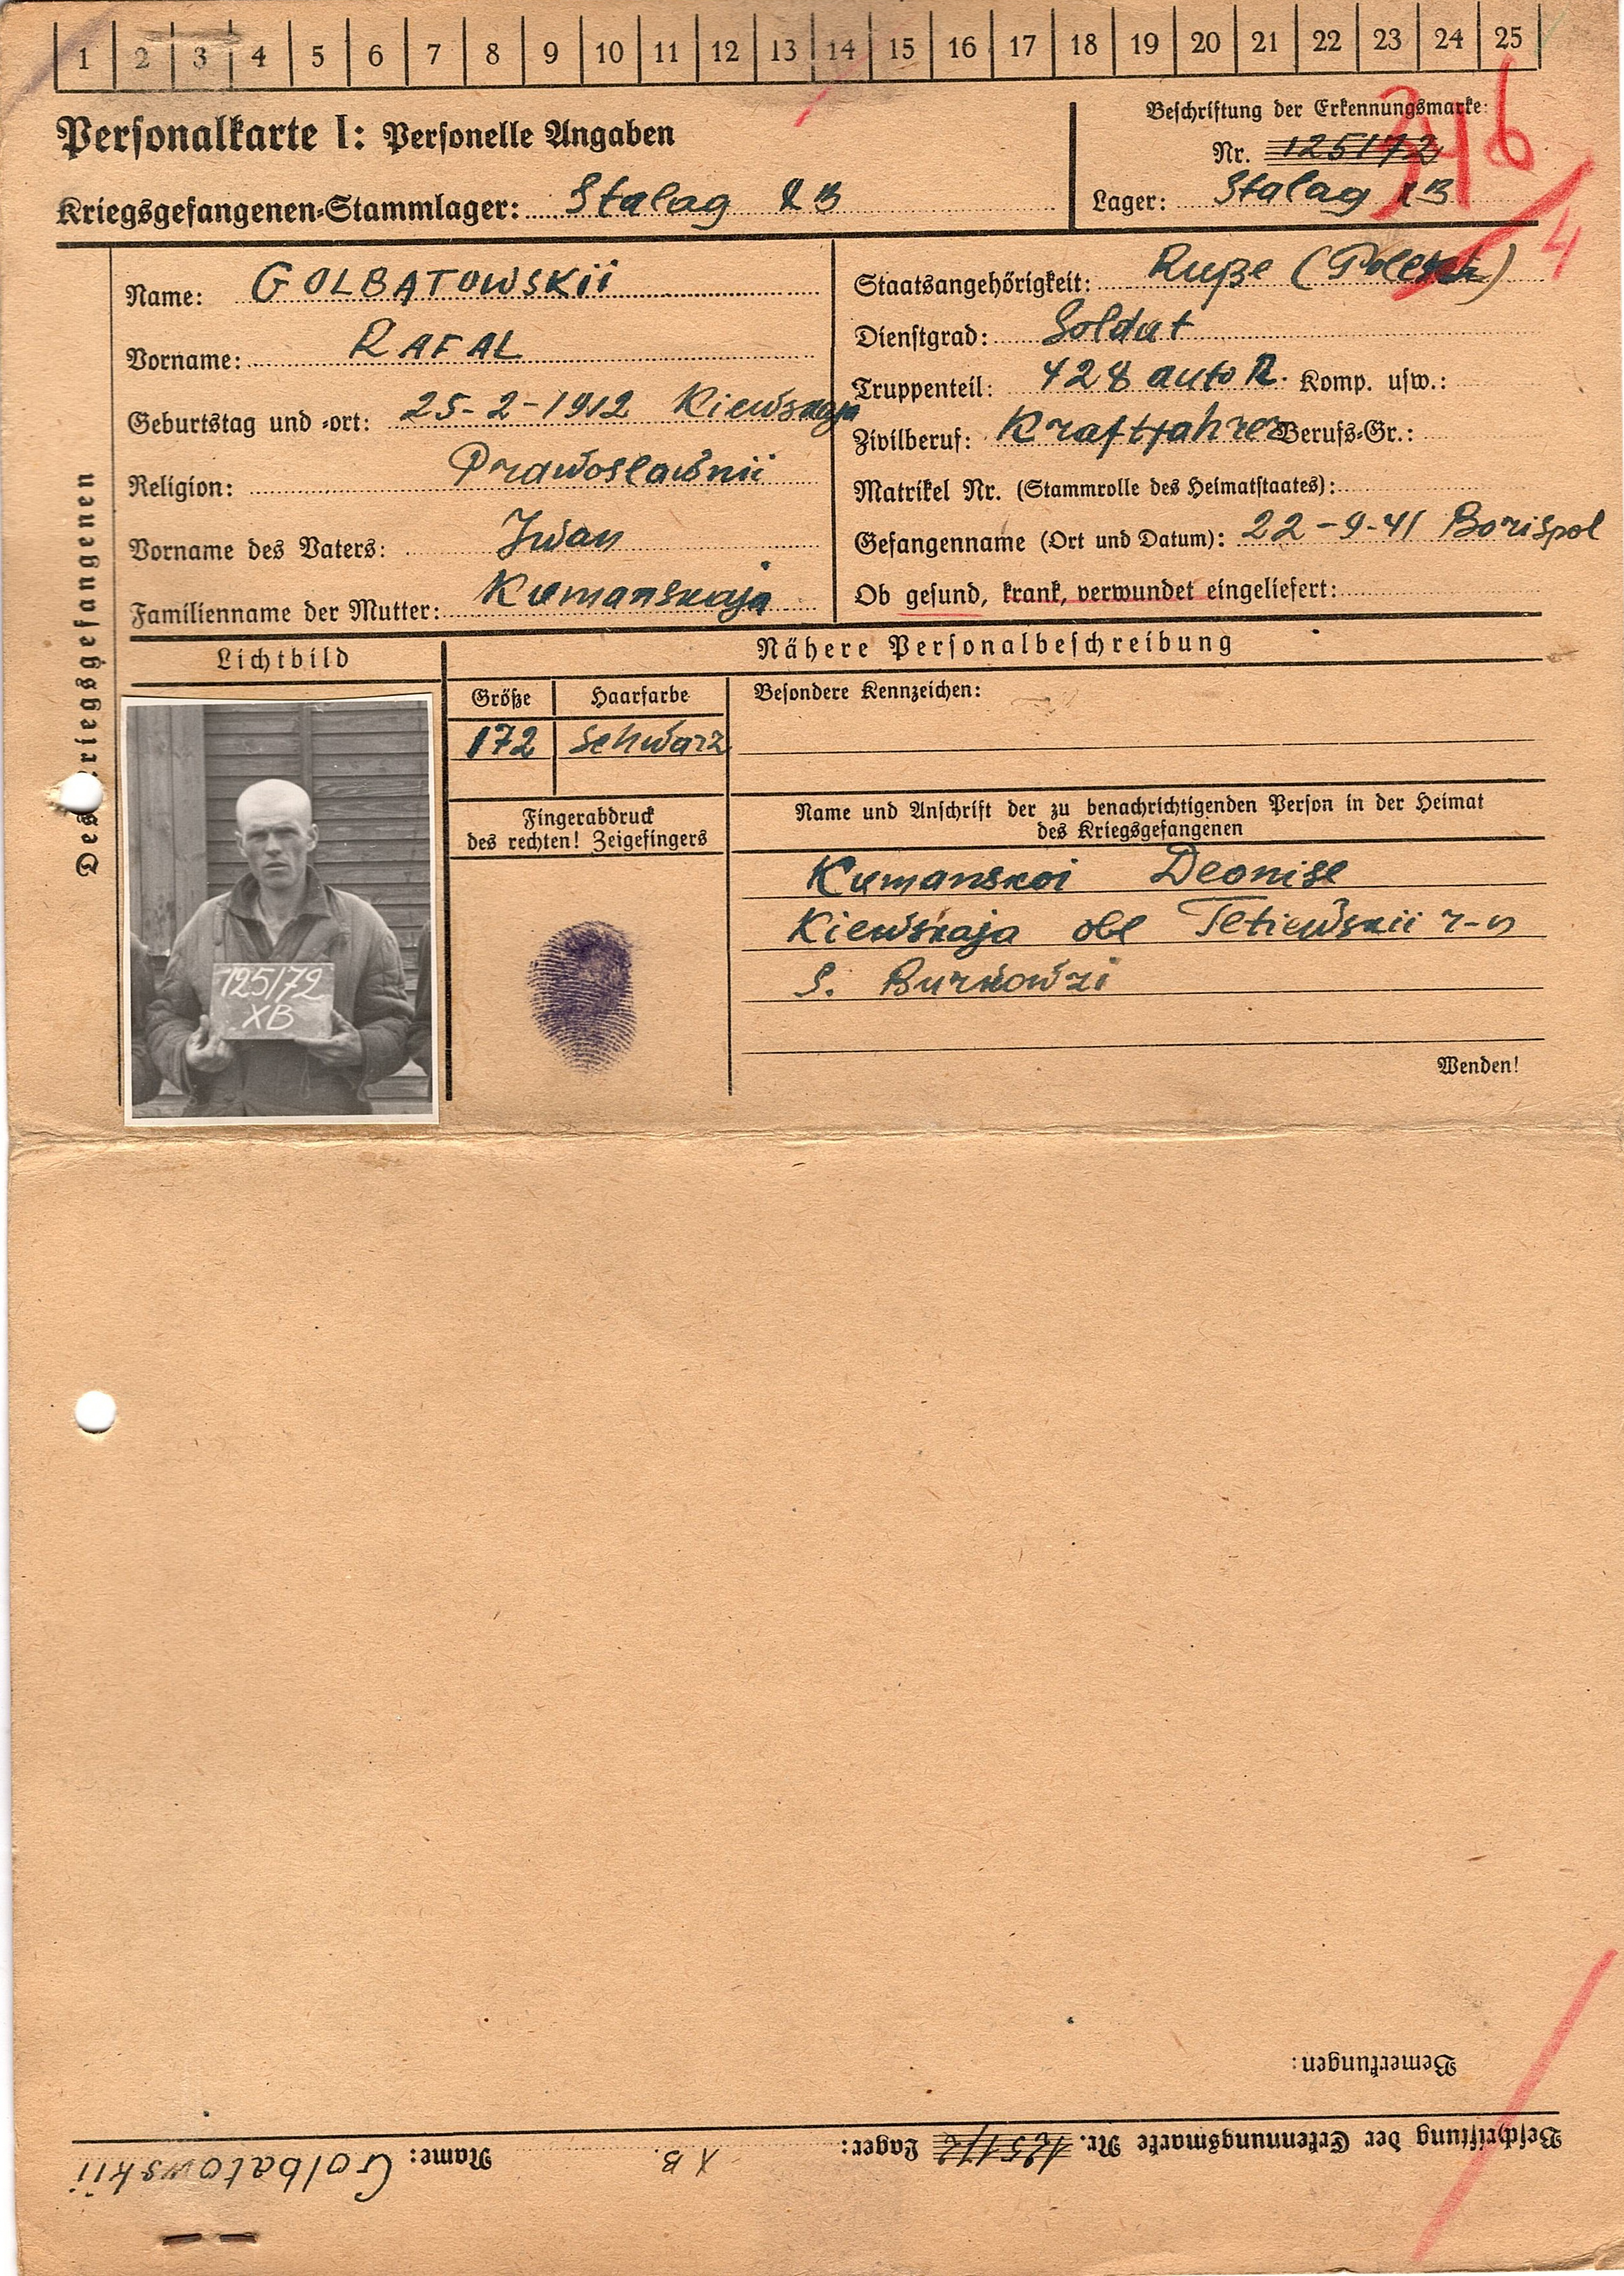 1 2 3 4 5 6 7 8 9 10 11 12 13 14 15 16 17 18 19 20 21 22 23 24 25
Personalkarte I: Personelle Angaben
Kriegsgefangenen-Stammlager: Stalag XB
Beschriftung der Erkennungsmarke:
Nr. 125172
Lager: Stalag XB
4
Des Kriegsgefangenen
Name: GOLBATOWSKii
Vorname: RAFAL
Geburtstag und -ort: 25-2-1912 Kiewskaja
Religion: Prawoslawnii
Vorname des Vaters: Iwan
Familienname der Mutter: Kumanskaja
Staatsangehörigkeit: Ruße (Polesch)
Dienstgrad: Soldat
Truppenteil: 428 auto R. Komp. usw.:
Zivilberuf: Kraftfahrer Berufs-Gr.:
Matrikel Nr. (Stammrolle des Heimatstaates):
Gefangenname (Ort und Datum): 22-9-41 Borispol
Ob gesund, krank, verwundet eingeliefert:
Lichtbild
125172
XB
Nähere Personalbeschreibung
Größe Haarfarbe Besondere Kennzeichen:
172 Schwarz
Fingerabdruck
des rechten! Zeigefingers
Name und Anschrift der zu benachrichtigenden Person in der Heimat
des Kriegsgefangenen
Kumanskoi Deonise
Kiewskaja obl Tetiewskii r-n
S. Burkowzi
Wenden!
Bemerkungen:
Beschriftung der Erkennungsmarke Nr. 125172 Lager: XB. Name: Golbatowskii